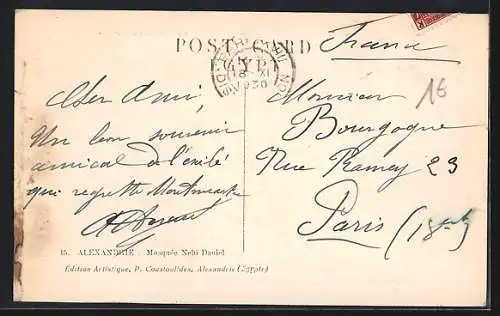 POST CARD
France
16
Cher Ami,
Un bon souvenir
amical de l'exilé
qui regrette Montmartre
Monsieur
Bourgogne
Rue Ramey 23
Paris (18
15. ALEXANDRIE : Mosquée Nebi Daniel
Édition Artistique, P. Coustoulides, Alexandrie (Égypte)